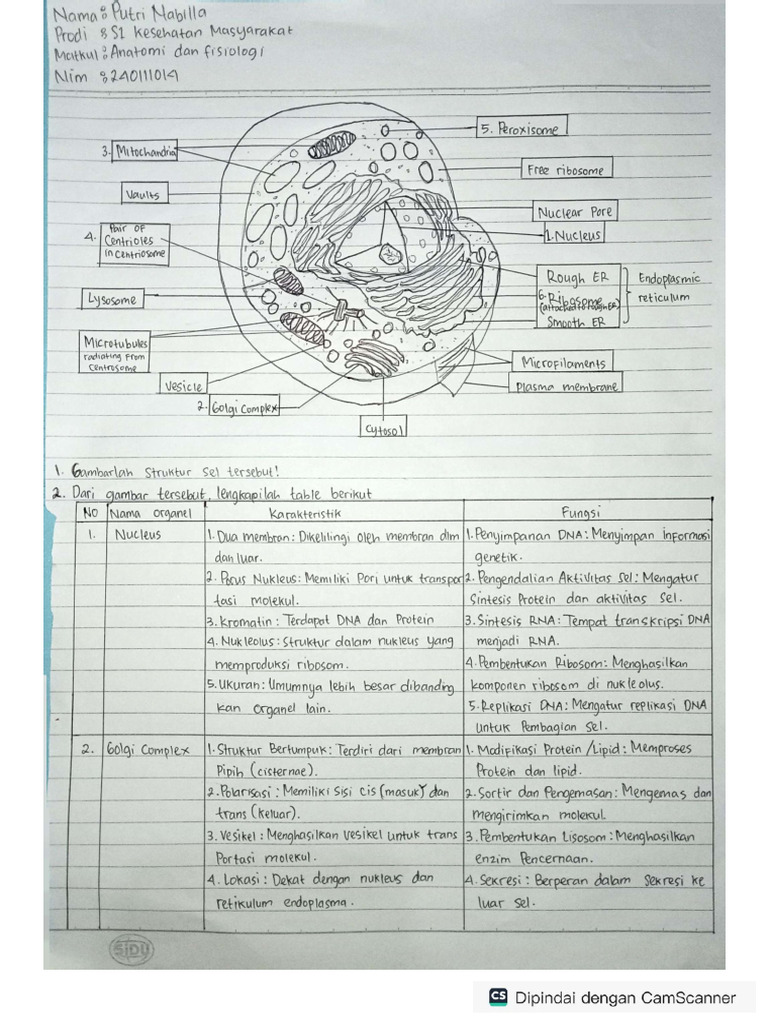 Nama : Putri Nabilla
Prodi : S1 Kesehatan Masyarakat
Matkul : Anatomi dan fisiologi
Nim : 240111019
3. Mitochandria
Vaults
4. Pair OF Centrioles in centriosome
Lysosome
Microtubules radiating From centrosome
Vesicle
2. Golgi Complex
Cytosol
5. Peroxisome
Free ribosome
Nuclear Pore
1. Nucleus
Rough ER
6. Ribosome (attached to rough ER)
Smooth ER
Endoplasmic reticulum
Microfilaments
Plasma membrane
1. Gambarlah Struktur Sel tersebut!
2. Dari gambar tersebut, lengkapilah table berikut
NO Nama organel Karakteristik Fungsi
1. Nucleus
1. Dua membran : Dikelilingi oleh membran dlm
dan luar.
2. Porus Nukleus : Memiliki Pori untuk transpor
tasi molekul.
3. Kromatin : Terdapat DNA dan Protein
4. Nukleolus : Struktur dalam nukleus yang
memproduksi ribosom.
5. Ukuran : Umumnya lebih besar dibanding
kan organel lain.
1. Penyimpanan DNA : Menyimpan informasi
genetik.
2. Pengendalian Aktivitas sel : Mengatur
Sintesis Protein dan aktivitas Sel.
3. Sintesis RNA : Tempat transkripsi DNA
menjadi RNA.
4. Pembentukan Ribosom : Menghasilkan
komponen ribosom di nukleolus.
5. Replikasi DNA : Mengatur replikasi DNA
untuk Pembagian Sel.
2. Golgi Complex
1. Struktur Bertumpuk : Terdiri dari membran
Pipih (cisternae).
2. Polarisasi : Memiliki Sisi cis (masuk) dan
trans (keluar).
3. Vesikel : Menghasilkan vesikel untuk trans
Portasi molekul.
4. Lokasi : Dekat dengan nukleus dan
retikulum endoplasma.
1. Modifikasi Protein / Lipid : Memproses
Protein dan lipid.
2. Sortir dan Pengemasan : Mengemas dan
mengirimkan molekul.
3. Pembentukan Lisosom : Menghasilkan
enzim Pencernaan.
4. Sekresi : Berperan dalam Sekresi ke
luar sel.
SIDU
CS Dipindai dengan CamScanner